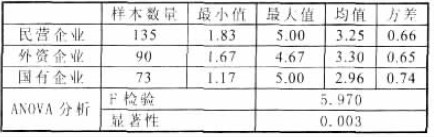 样本数量 最小值 最大值 均值 方差
民营企业 135 1.83 5.00 3.25 0.66
外资企业 90 1.67 4.67 3.30 0.65
国有企业 73 1.17 5.00 2.96 0.74
ANOVA 分析 F 检验 5.970
显著性 0.003